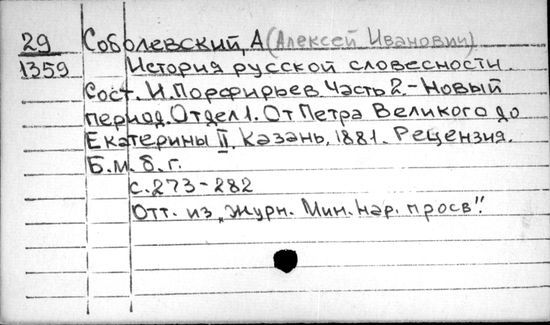 29 Соболевский, А (Алексей Иванович)
1359 История русской словесности.
Сост. И. Порфирьев. Часть 2. - Новый
период. Отдел 1. От Петра Великого до
Екатерины II. Казань, 1881. Рецензия.
Б.м. б. г.
с. 273-282
Отт. из „Журн. Мин. нар. просв".